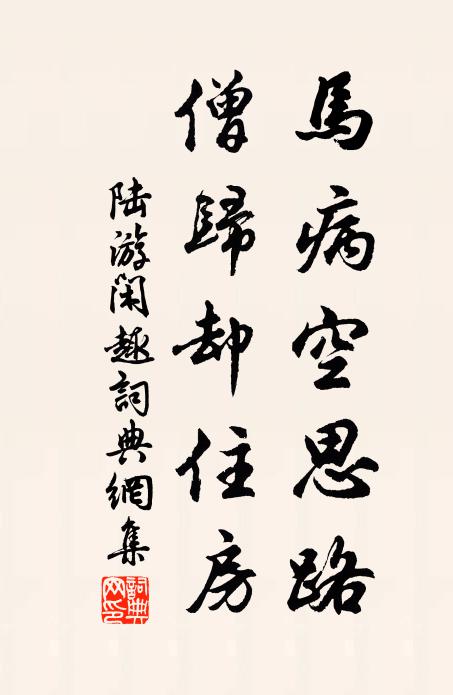 馬病空思路
僧歸却住房
陸游閑趣詞典網集
詞典网印